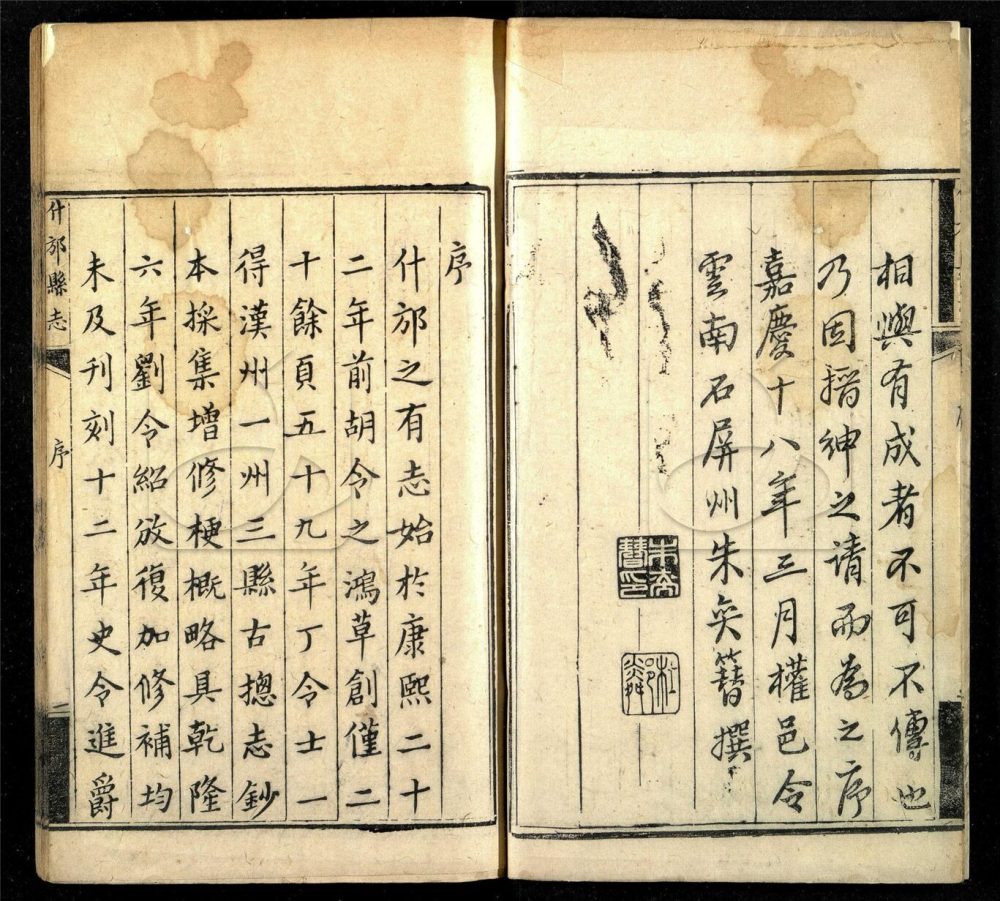 相與有成者不可不傳也
乃因搢紳之請而為之序
嘉慶十八年三月權邑令
雲南石屏州朱奕簪撰
朱奕簪印
序
什邡之有志始於康熙二十
二年前胡令之鴻草創僅二
十餘頁五十九年丁令士一
得漢州一州三縣古摠志鈔
本採集增修梗概略具乾隆
六年劉令紹攽復加修補均
未及刊刻十二年史令進爵
什邡縣志
序